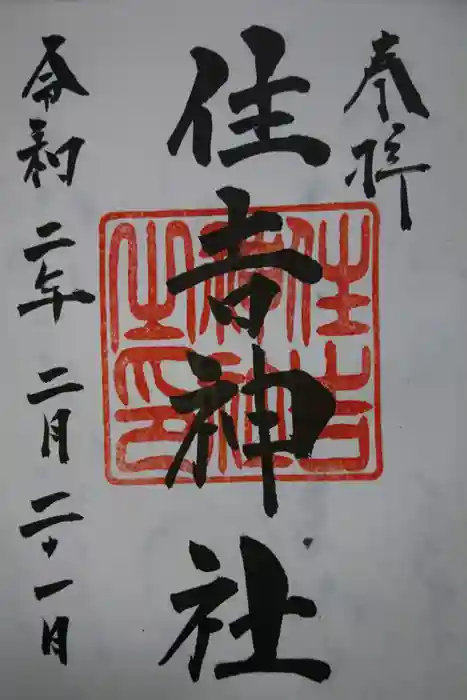 奉拝
住吉神社
令和二年二月二十一日
住吉神社之印